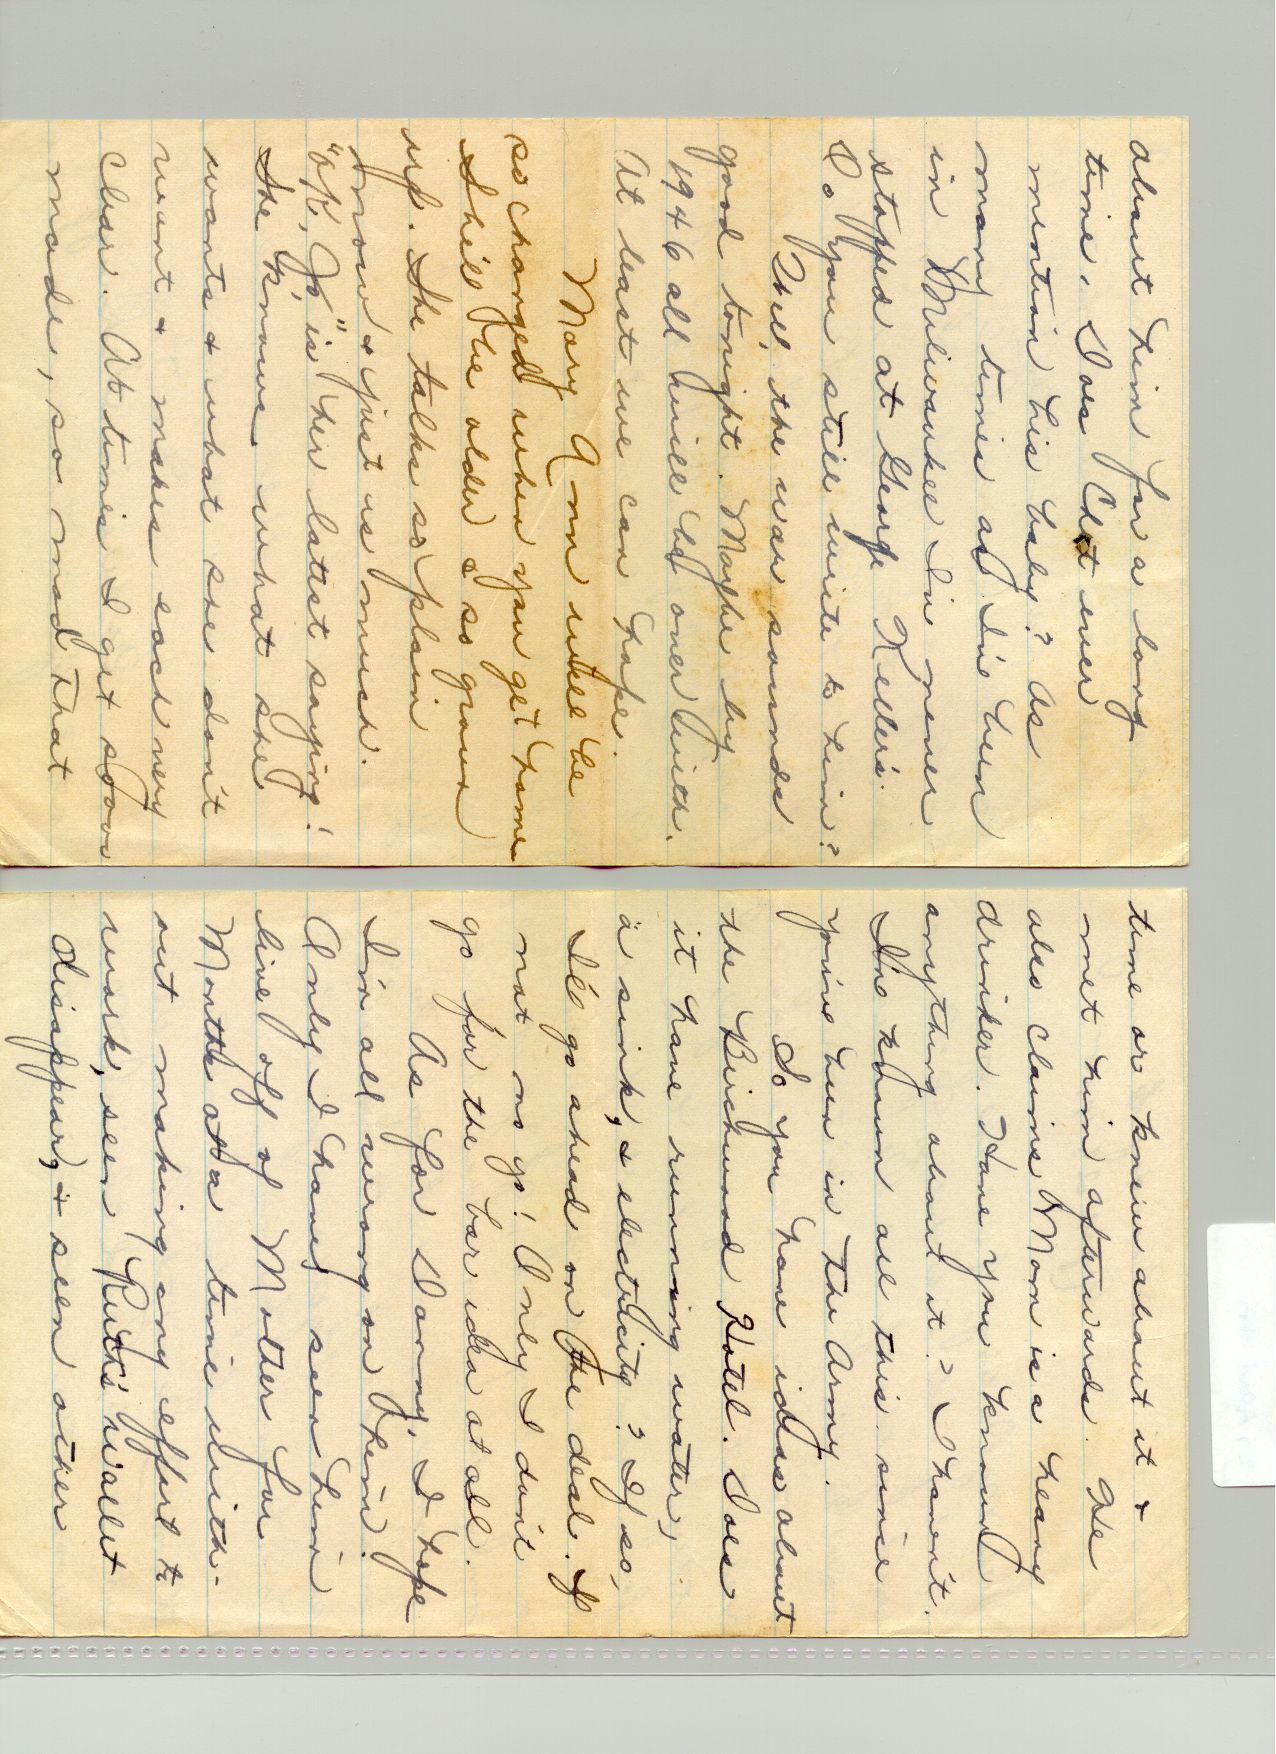 about him for a long
time. Does Chet ever
mention his baby? As
many times as I've been
in Milwaukee I've never
stopped at George Keller's.
Do you still write to him?
Well, the war sounds
good tonight. Maybe by
1946 all will be over with.
At least we can hope.
Mary Ann will be
so changed when you get home
She'll be older & so grown
up. She talks so plain
now & just is much.
"Ok, Jo" is her latest saying!
She knows what she
wants & what she don't
want & makes each very
clear. At times I get sooo
made, so mad that
time or knew about it &
met him afterwards. He
also claims Mom is a heavy
drinker. Have you known
anything about it? I haven't.
I've known all this since
you've been in the Army.
So you have ideas about
the Birchwood Hotel. Does
it have running water,
a sink, & electricity? If so,
I'd go ahead on the deal. If
not no go! Only I don't
go for the bar idea at all.
As for Danny, I hope
I'm all wrong on him!
Only I have seen him
live off of Mother for
Months at a time with-
out making any effort to
work, seen Ruth's wallet
disappear, & seen other